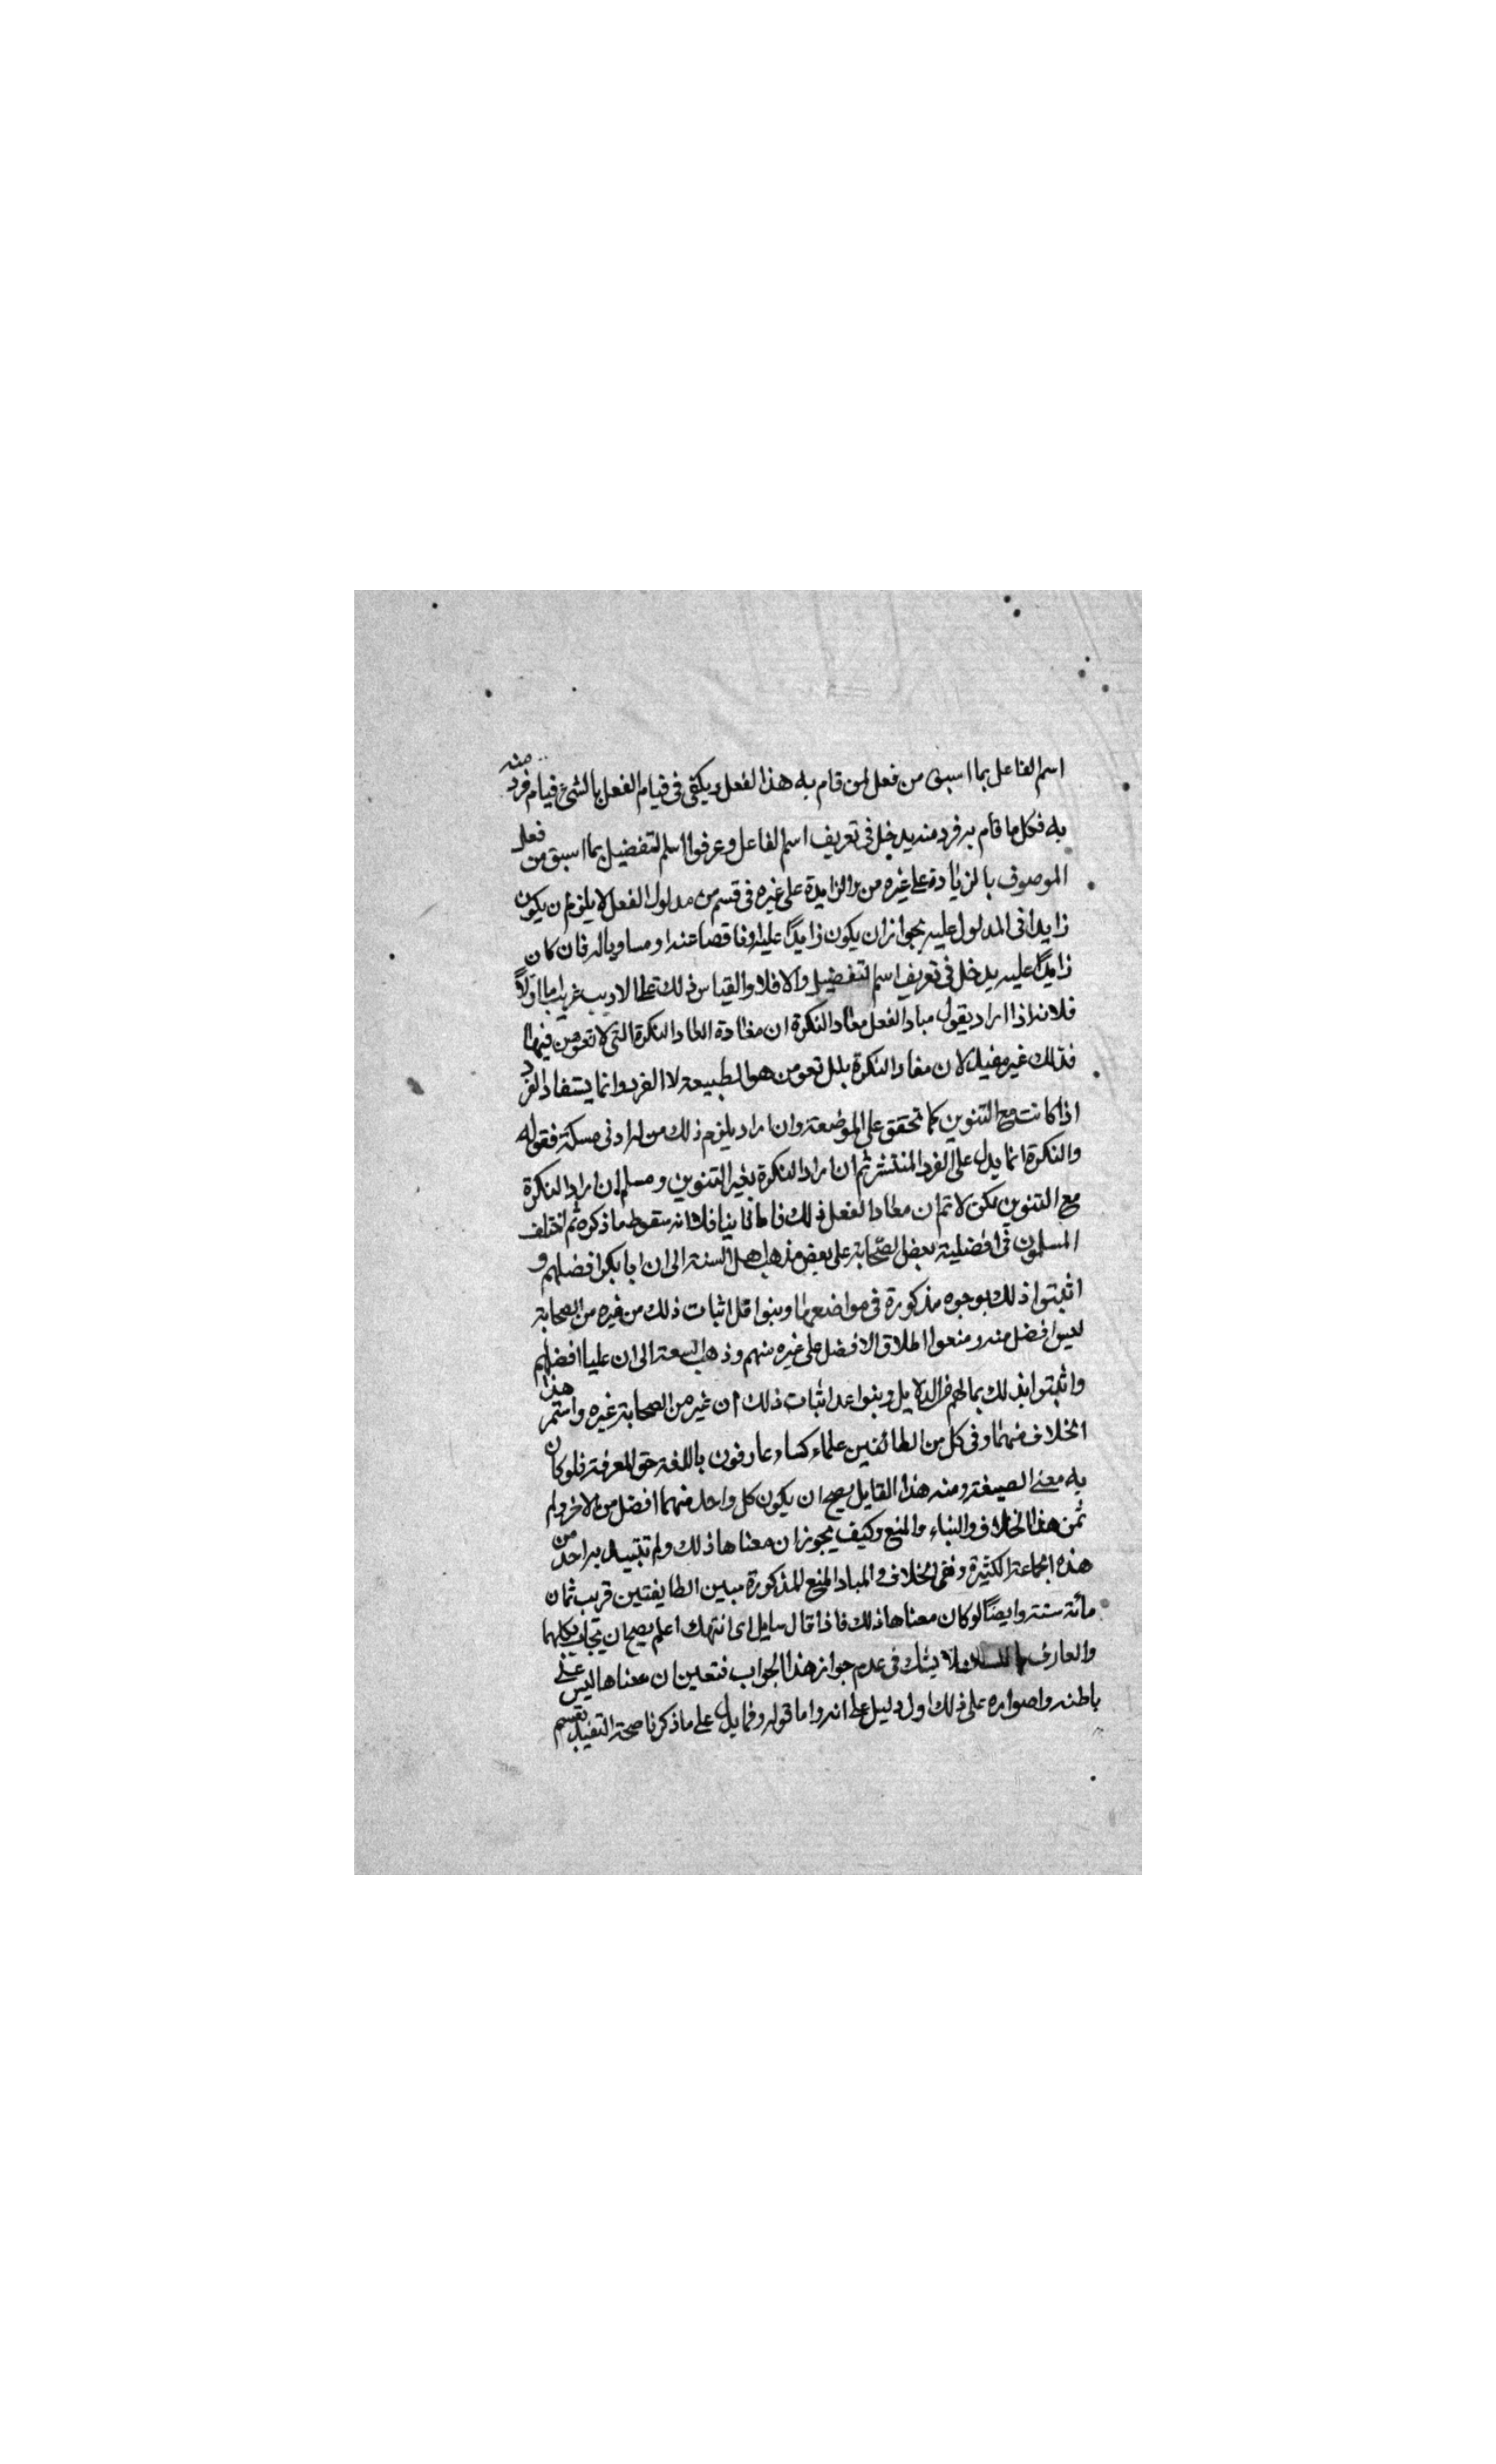 اسم الفاعل بما اسبق من فعل لمن قام به هذا الفعل ويكفى فى قيام الفعل بالشئ قيام فرد منه
به فكل ما قام به فرد منه يدخل فى تعريف اسم الفاعل وعرفوا اسلم لتفضيل بما اسبق من فعل
الموصوف بالزيادة على غيره من والزايدة على غيره فى قسم من مدلول الفعل لا يلزم ان يكون
زايدا فى المدلول عليه بجواز ان يكون زايدًا عليه وناقصا عنه ومساويا له فان كان
زايدًا عليه يدخل فى تعريف اسم لتفضيل والا فلا والقياس ذلك على الاديب غريب اما اولاً
فلانه اذا اراد بقول مباد الفعل مفاد النكرة ان مفادة المفاد النكرة التى لا تعوين فيها
فذلك غير مفيد لان مفاد النكرة بلل تعوين هو الطبيعة لا الفرد وانما يستفاد الفرد
اذا كانت مع التنوين كما تحقق على الموضعة وان اراد يلزم ذلك من اراد فى مسكة فقوله
والنكرة انما يدل على الفرد المنتشر ثم ان اراد النكرة بغير التنوين ومسلم ان اراد النكرة
مع التنوين لكن لا تم ان مفاد الفعل ذلك فاما ثانيا فلانه سقوط ما ذكره ثم اختلف
المسلمون فى افضلية بعض الصحابة على بعض مذهب اهل السنة الى ان ابا بكر افضلهم و
اثبتوا ذلك بوجوه مذكورة فى مواضعها وبنوا قل اثبات ذلك من غيره من الصحابة
ليس افضل منه ومنعوا اطلاق الافضل على غيره منهم وذهب السعة الى ان عليا افضلهم
واثبتوا بذلك بما لهم من الدلايل وبنوا عدا اثبات ذلك ان غير من الصحابة غيره واستمر هذا
الخلاف منهما وفى كل من الطائفين علماء كساء عارفون باللغة حق المعرفة فلو كان
به معنى الصيغة ومنه هذا القايل يصح ان يكون كل واحد منهما افضل من الاخر ولم
ثمن هذا الخلاف والبناء والمنع وكيف يجوز ان معناها ذلك ولم تتبيد به احد من
هذه الجماعة الكثيرة ونفى الخلاف والمباد المنع المذكورة مبين الطايفتين قريب ثمان
مائة سنة وايضًا لو كان معناها ذلك فاذا قال سايل اى انتهك اعلم يصح ان يجاب بكلهما
والعارف باللسان لا يشك فى عدم جواز هذا الجواب فتعين ان معناها ليس عنى
باطنه واصواره على ذلك اول دليل على انه واما قوله وفما يدل على ما ذكرنا صحة التقييد بقسم